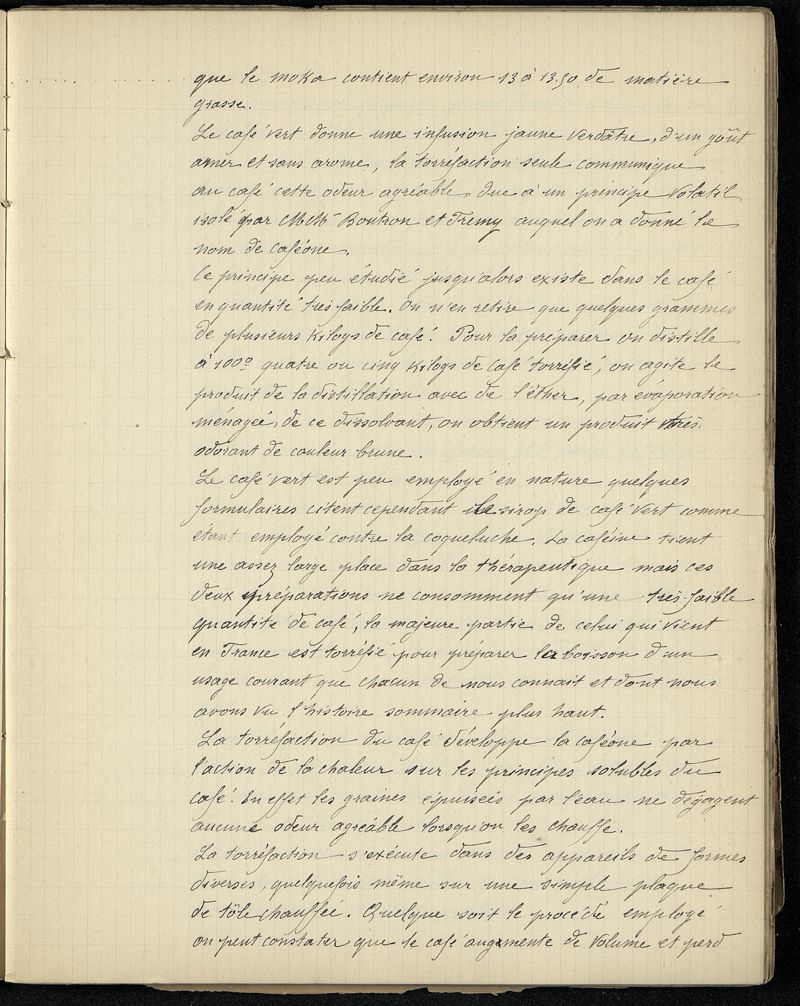 que le moka contient environ 13 à 13.50 de matière
grasse.
Le café vert donne une infusion jaune verdâtre, d'un goût
amer et sans arome, la torréfaction seule communique
au café cette odeur agréable due à un principe volatil
isolé par MM Boutron et Fremy auquel on a donné le
nom de caféone.
Ce principe peu étudié jusqu'alors existe dans le café
en quantité très faible. On n'en retire que quelques grammes
de plusieurs Kilogs de café. Pour la préparer on distille
à 100° quatre ou cinq Kilogs de café torréfié, on agite le
produit de la distillation avec de l'éther, par évaporation
ménagée, de ce dissolvant, on obtient un produit très
odorant de couleur brune.
Le café vert est peu employé en nature quelques
formulaires citent cependant le sirop de café vert comme
étant employé contre la coqueluche. La caféine tient
une assez large place dans la thérapeutique mais ces
deux préparations ne consomment qu'une très faible
quantité de café, la majeure partie de celui qui vient
en France est torréfié pour préparer la boisson d'un
usage courant que chacun de nous connait et dont nous
avons vu l'histoire sommaire plus haut.
La torréfaction du café développe la caféone par
l'action de la chaleur sur les principes solubles du
café. En effet les graines épuisées par l'eau ne dégagent
aucune odeur agréable lorsqu'on les chauffe.
La torréfaction s'exécute dans des appareils de formes
diverses, quelquefois même sur une simple plaque
de tôle chauffée. Quelque soit le procédé employé
on peut constater que le café augmente de volume et perd